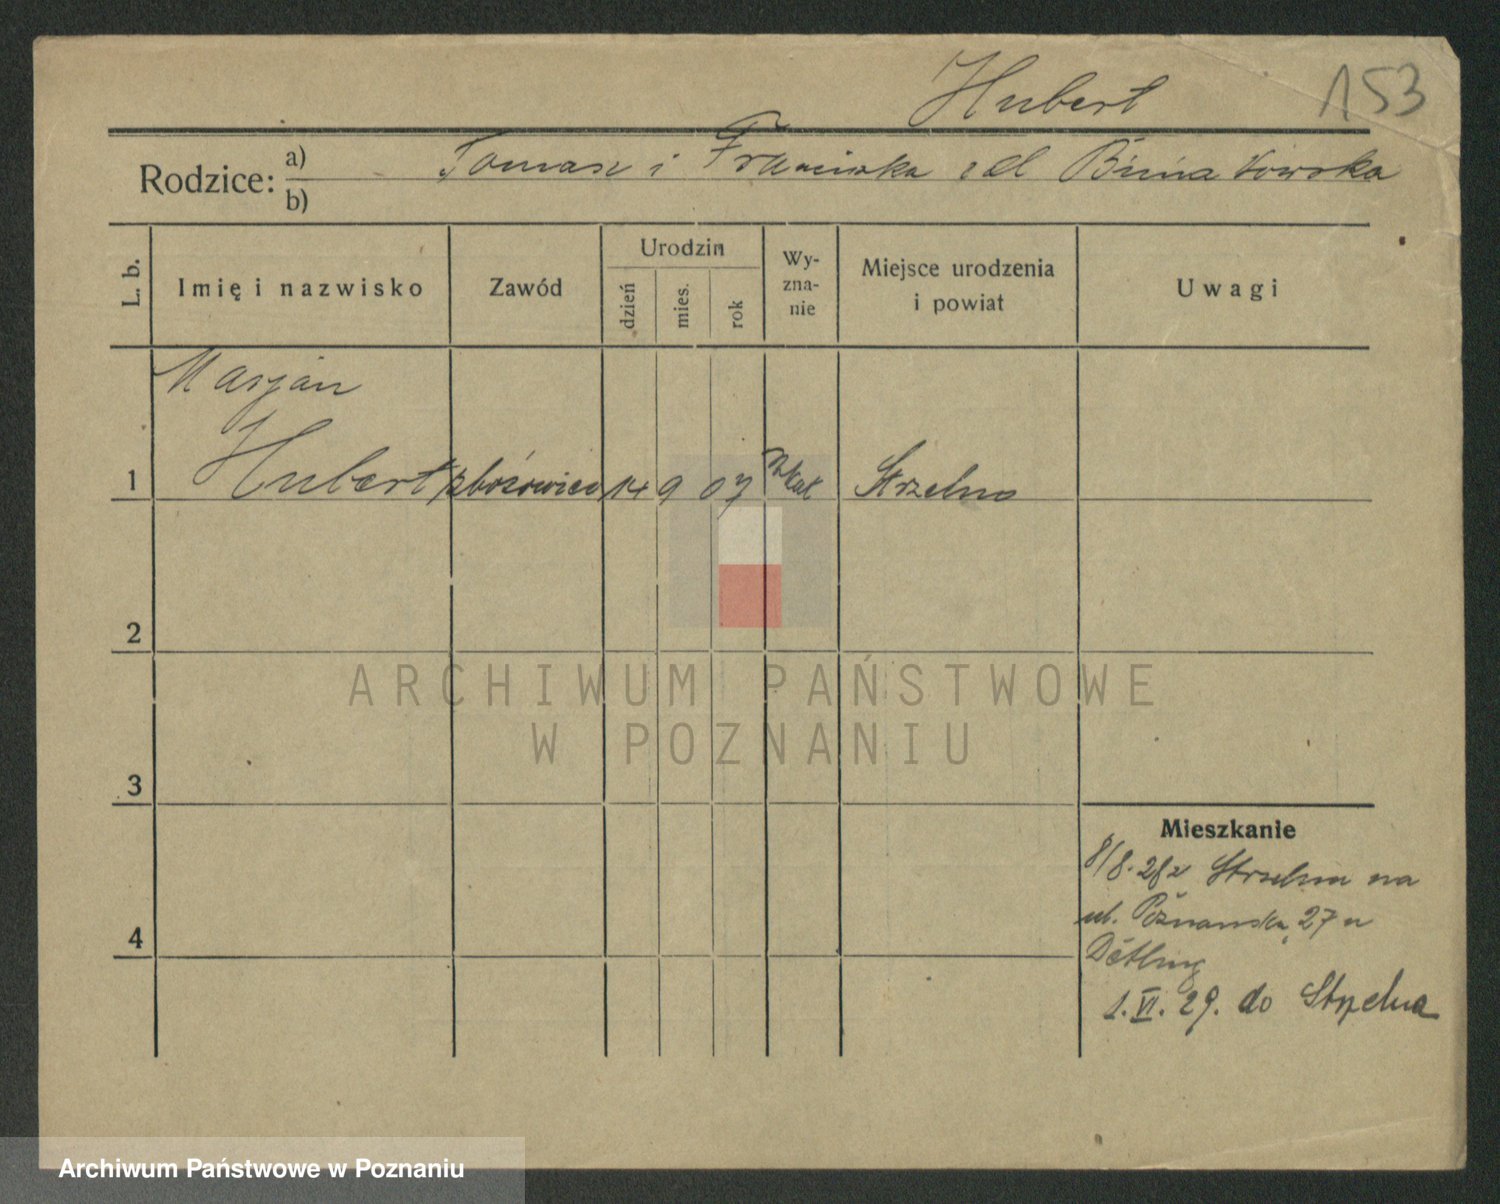 Hubert
153
Rodzice:
a) Tomasz i Franciszka z d.
b)
L. b.
Imię i nazwisko
Zawód
Urodzin
dzień
mies.
rok
Wy-
zna-
nie
Miejsce urodzenia
i powiat
Uwagi
Marjan
1 Hubert zbożowiec 14 9 07 Strzelno
2
3
4
ARCHIWUM PAŃSTWOWE
W POZNANIU
Mieszkanie
8/8.28 z Strzelna na
ul. Poznańska 27 u
Detling
1. VI. 29. do Strzelna
Archiwum Państwowe w Poznaniu